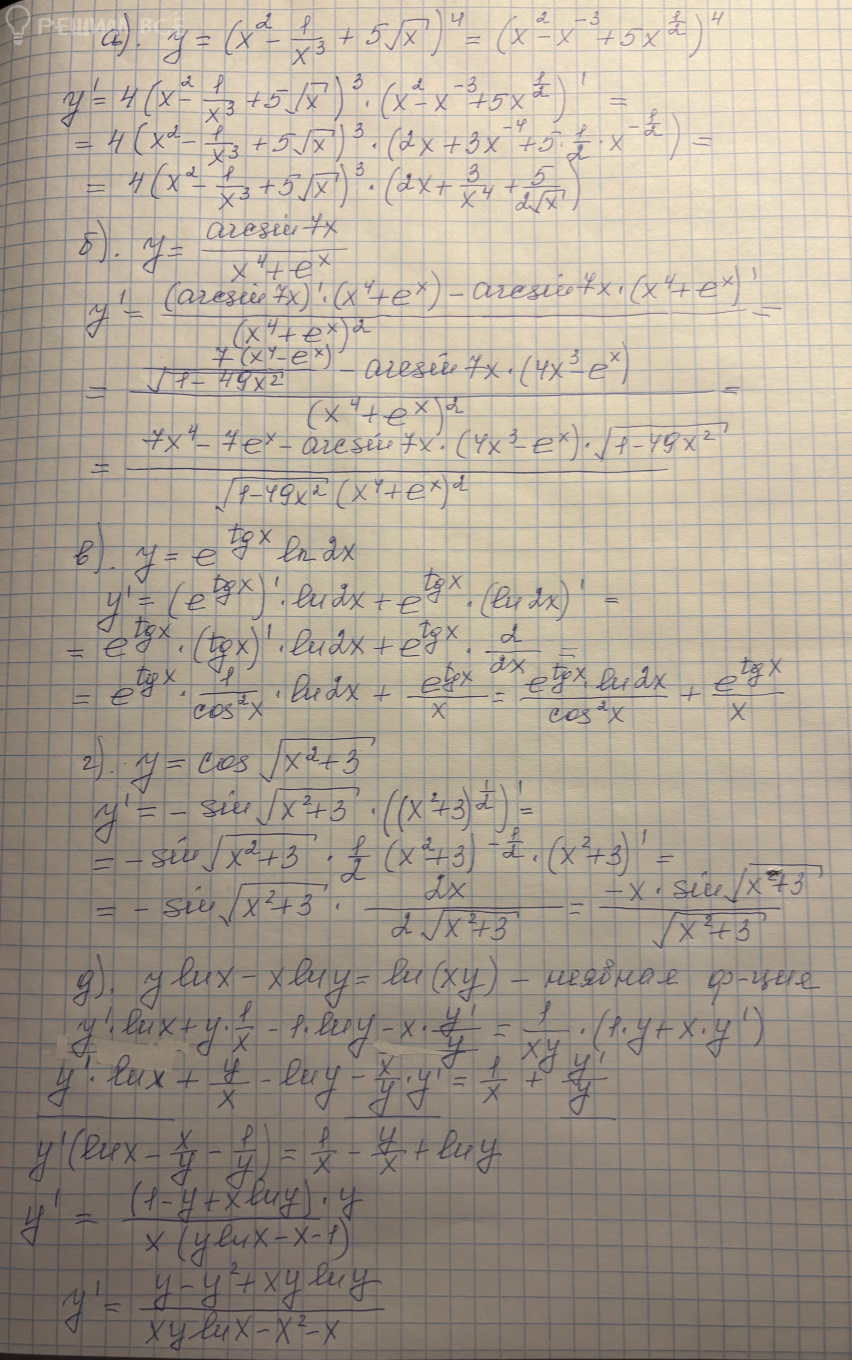 РЕШИМ ВСЕ
а). y = (x² - 1/x³ + 5√x)⁴ = (x² - x⁻³ + 5x^(1/2))⁴
y' = 4(x² - 1/x³ + 5√x)³ · (x² - x⁻³ + 5x^(1/2))' =
= 4(x² - 1/x³ + 5√x)³ · (2x + 3x⁻⁴ + 5·1/2·x^(-1/2)) =
= 4(x² - 1/x³ + 5√x)³ · (2x + 3/x⁴ + 5/(2√x))
б). y = arcsin 7x / (x⁴ + eˣ)
y' = ((arcsin 7x)' · (x⁴ + eˣ) - arcsin 7x · (x⁴ + eˣ)') / (x⁴ + eˣ)² =
= (7(x⁴ - eˣ)/√(1 - 49x²) - arcsin 7x · (4x³ - eˣ)) / (x⁴ + eˣ)² =
= (7x⁴ - 7eˣ - arcsin 7x · (4x³ - eˣ) · √(1 - 49x²)) / (√(1 - 49x²) (x⁴ + eˣ)²)
в). y = e^(tg x) ln 2x
y' = (e^(tg x))' · ln 2x + e^(tg x) · (ln 2x)' =
= e^(tg x) · (tg x)' · ln 2x + e^(tg x) · 2/2x =
= e^(tg x) · 1/cos²x · ln 2x + e^(tg x)/x = e^(tg x) · ln 2x / cos²x + e^(tg x)/x
г). y = cos √(x² + 3)
y' = - sin √(x² + 3) · ((x² + 3)^(1/2))' =
= - sin √(x² + 3) · 1/2 (x² + 3)^(-1/2) · (x² + 3)' =
= - sin √(x² + 3) · 2x / (2√(x² + 3)) = -x · sin √(x² + 3) / √(x² + 3)
д). y ln x - x ln y = ln (xy) - неявная ф-ция
y' · ln x + y · 1/x - 1 · ln y - x · y'/y = 1/xy · (1 · y + x · y')
y' · ln x + y/x - ln y - x/y · y' = 1/x + y'/y
y' (ln x - x/y - 1/y) = 1/x - y/x + ln y
y' = (1 - y + x ln y) · y / (x (y ln x - x - 1))
y' = (y - y² + xy ln y) / (xy ln x - x² - x)